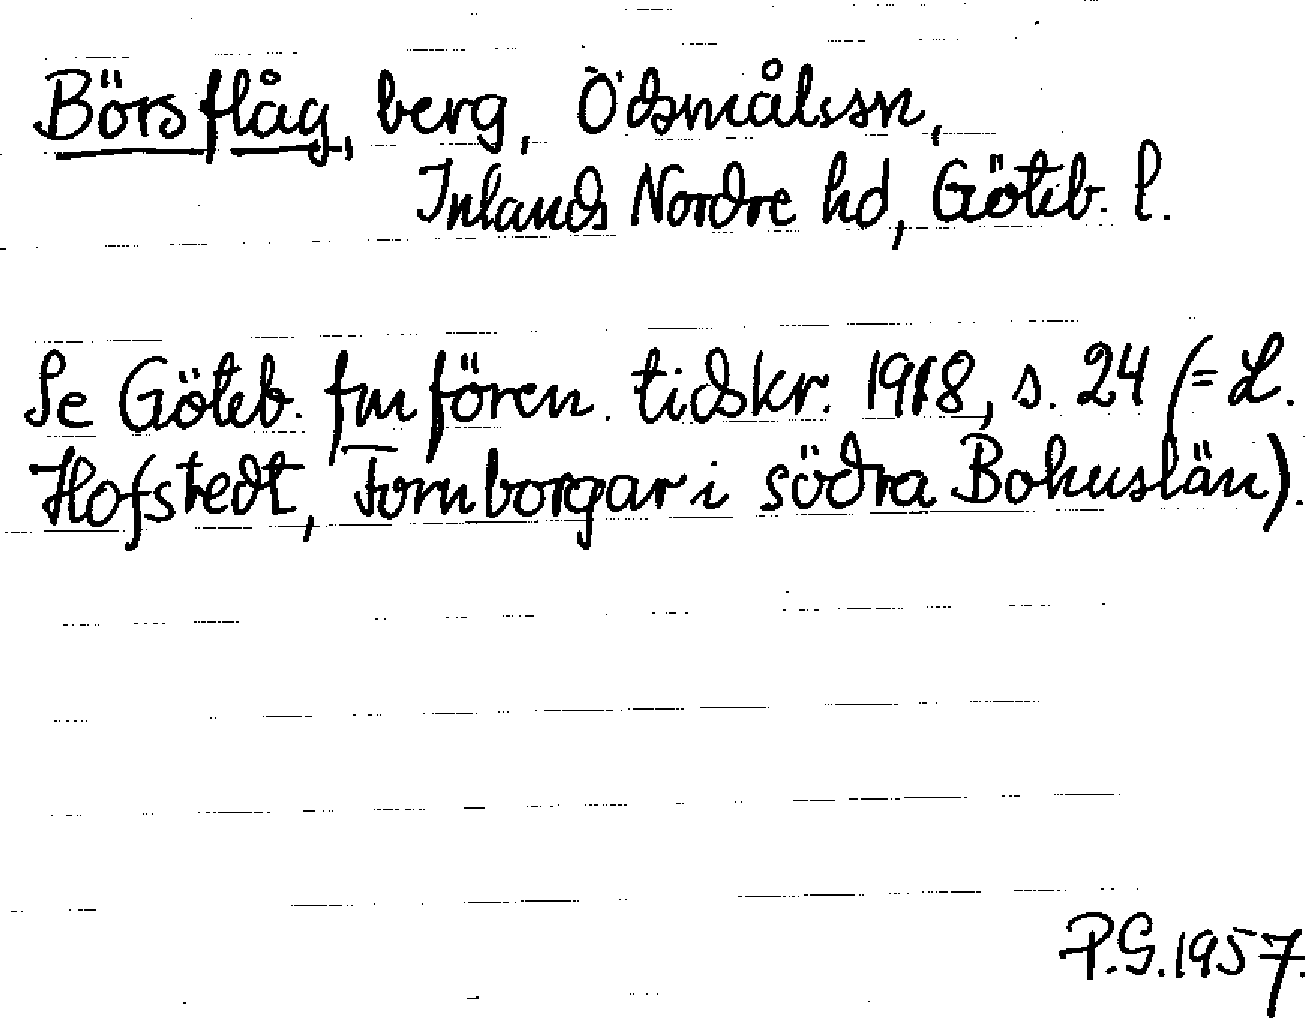 Börsflåg, berg, Ödsmålssn,
Inlands Nordre hd, Göteb. l.
Se Göteb. fmfören. tidskr. 1918, s. 24 (= L.
Hofstedt, Fornborgar i södra Bohuslän).
P.G. 1957.